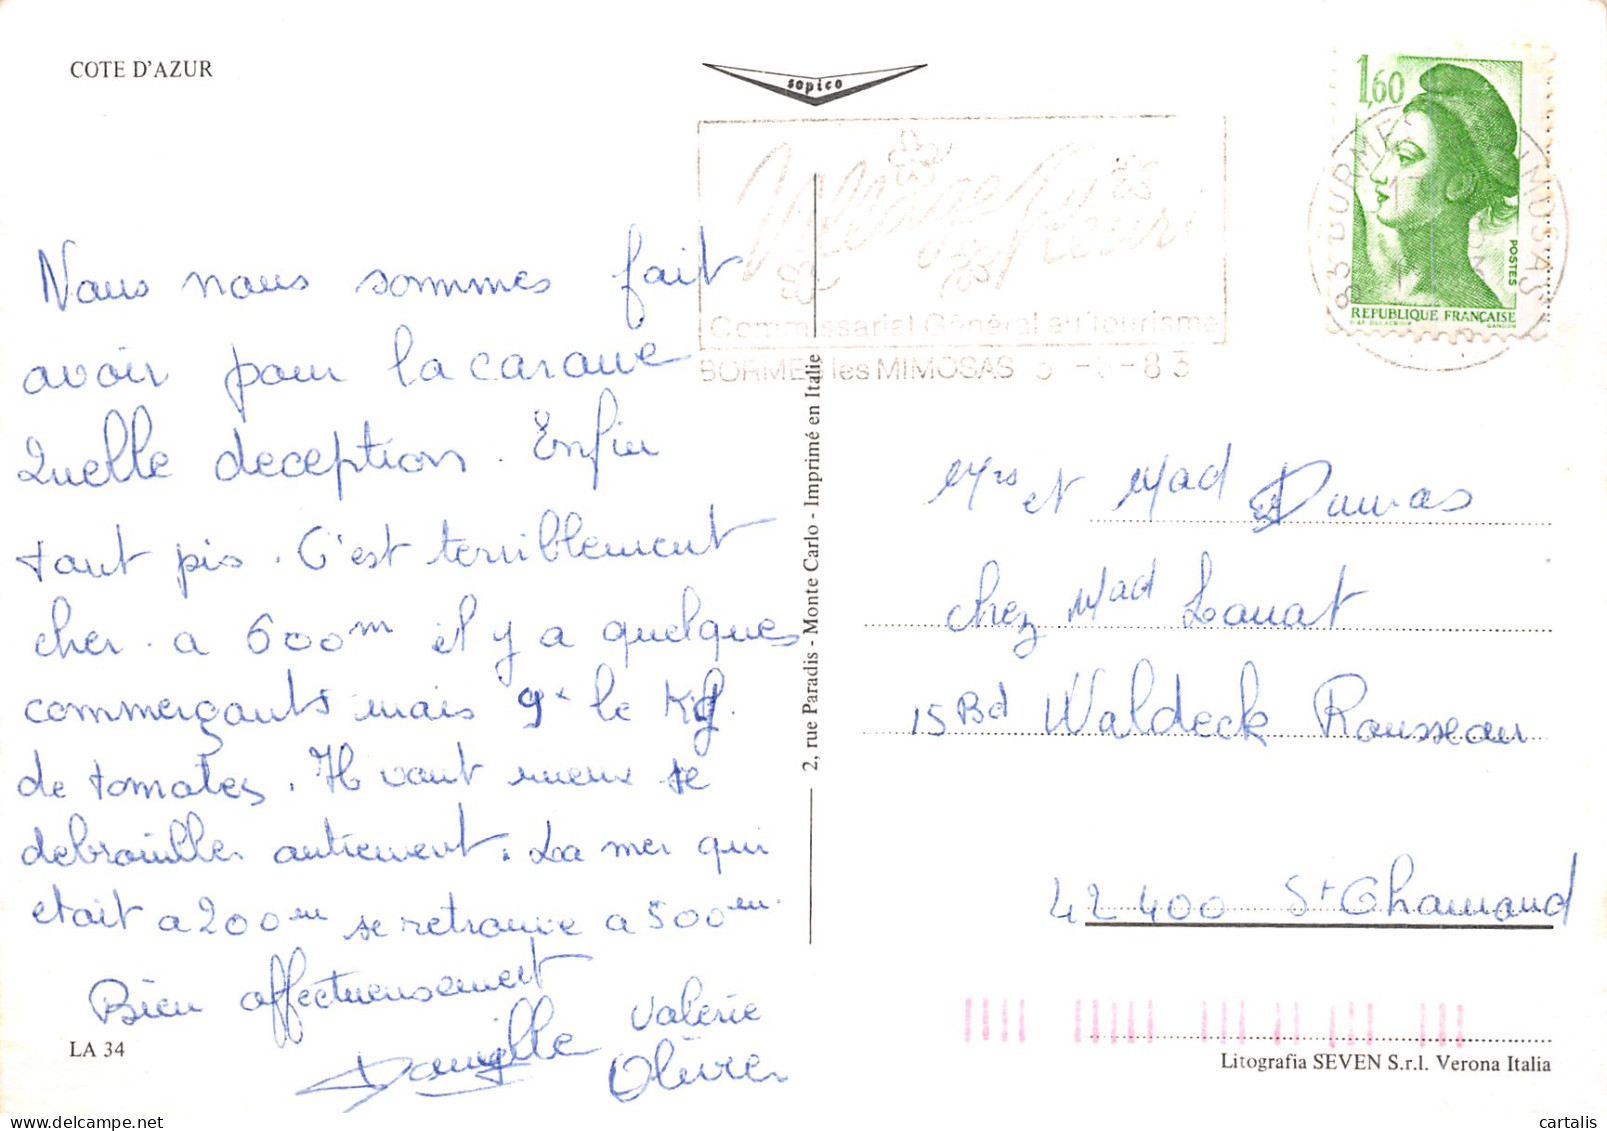 COTE D'AZUR
sopico
1,60
POSTES
REPUBLIQUE FRANÇAISE
Commissariat Général au Tourisme
BORMES les MIMOSAS
Nous nous sommes fait
avoir pour la carauve
Quelle deception. Enfin
tant pis. C'est terriblement
cher. a 600m il y a quelques
commerçants mais 9F le Kg.
de tomates. Il vaut mieux se
debrouiller autrement. La mer qui
etait a 200m se retrouve a 500m.
Bien affectueusement
Danielle Valérie
Olivier
LA 34
2, rue Paradis - Monte Carlo - Imprimé en Italie
Mrs et Mad Dumas
chez Mad Lauat
15 Bd Waldeck Rousseau
42400 St Chamand
Litografia SEVEN S.r.l. Verona Italia
cartalis